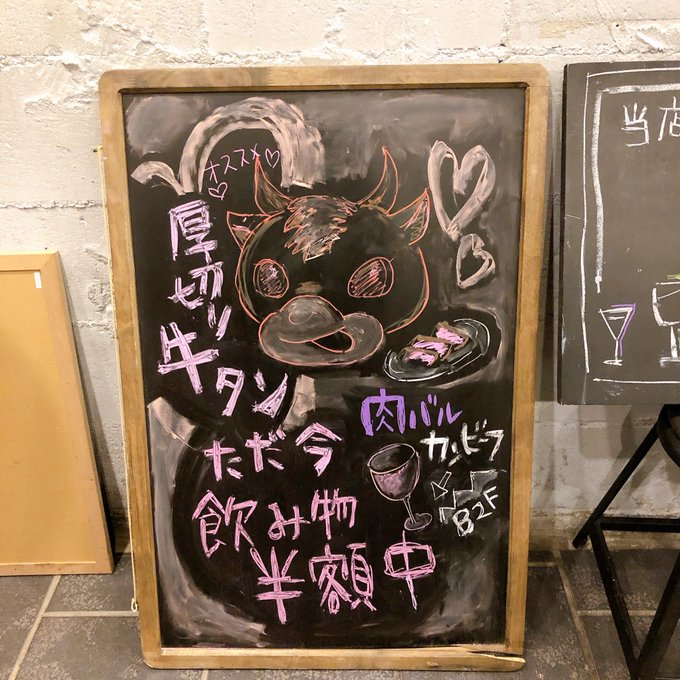 オススメ
厚切り
牛タン
ただ今
飲み物
半額中
肉バル
カンビーフ
B2F
当店